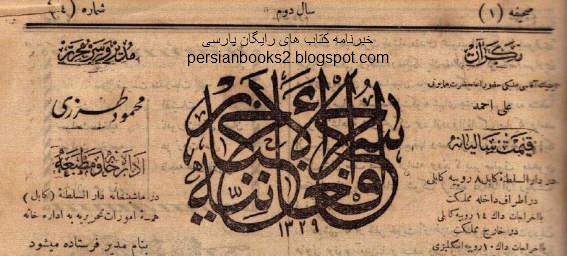 صحیفه (۱)
سال دوم
شماره (۴)
خبرنامه کتاب های رایگان پارسی
persianbooks2.blogspot.com
نگران
علی احمد
قیمت سالیانه
در دار السلطنهٔ کابل ۸ روپیه کابلی
در اطراف داخله مملکت
با اخراجات داک ۱۴ روپیه کابلی
در خارج مملکت
با اخراجات داک ۱۰ روپیه انگلیزی
سراج الاخبار افغانیه
۱۳۲۹
مدیر و سرمحرر
محمود طرزی
اداره خانه و مطبعه
در ماشینخانه دار السلطنهٔ (کابل)
همهٔ امورات تحریریه به اداره خانه
بنام مدیر فرستاده میشود